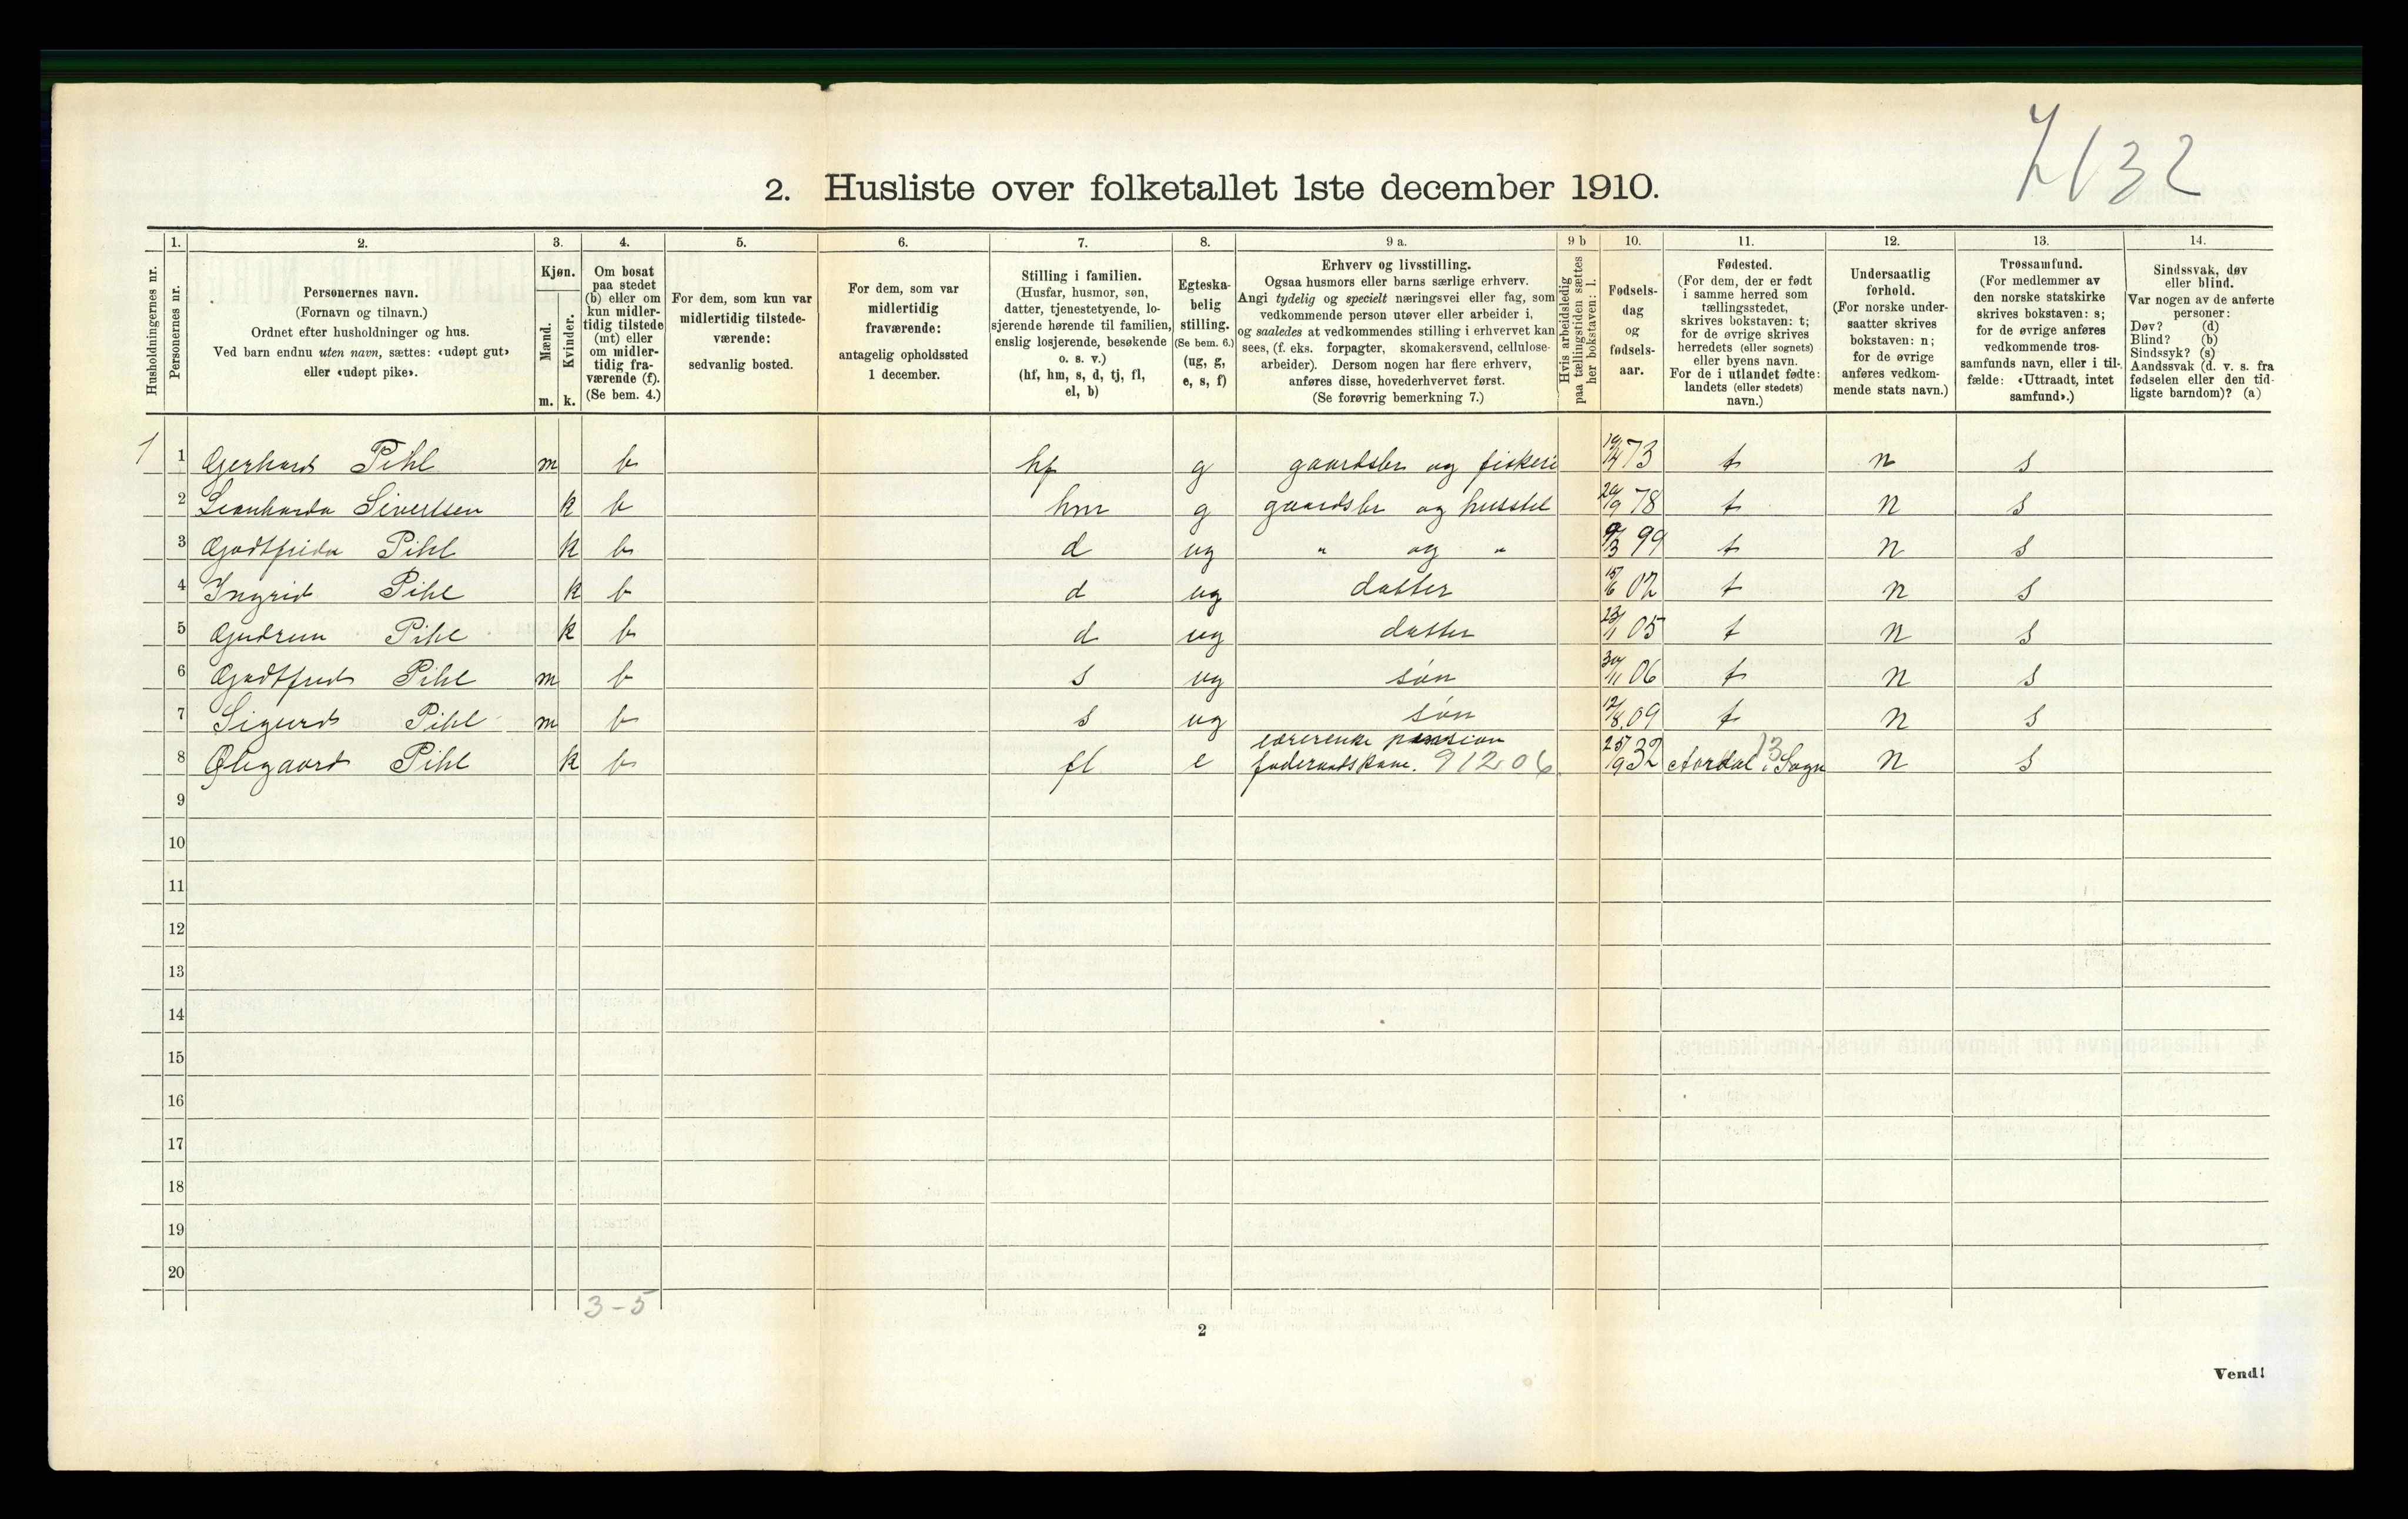 2. Husliste over folketallet 1ste december 1910.
Husholdningernes nr.
1. Personernes nr.
2. Personernes navn.
(Fornavn og tilnavn.)
Ordnet efter husholdninger og hus.
Ved barn endnu uten navn, sættes: «udøpt gut»
eller «udøpt pike».
3. Kjøn.
Mænd. m.
Kvinder. k.
4. Om bosat
paa stedet
(b) eller om
kun midler-
tidig tilstede
(mt) eller
om midler-
tidig fra-
værende (f).
(Se bem. 4.)
5. For dem, som kun var
midlertidig tilstede-
værende:
sedvanlig bosted.
6. For dem, som var
midlertidig
fraværende:
antagelig opholdssted
1 december.
7. Stilling i familien.
(Husfar, husmor, søn,
datter, tjenestetyende, lo-
sjerende hørende til familien,
enslig losjerende, besøkende
o. s. v.)
(hf, hm, s, d, tj, fl,
el, b)
8. Egteska-
belig
stilling.
(Se bem. 6.)
(ug, g,
e, s, f)
9 a. Erhverv og livsstilling.
Ogsaa husmors eller barns særlige erhverv.
Angi tydelig og specielt næringsvei eller fag, som
vedkommende person utøver eller arbeider i,
og saaledes at vedkommendes stilling i erhvervet kan
sees, (f. eks. forpagter, skomakersvend, cellulose-
arbeider). Dersom nogen har flere erhverv,
anføres disse, hovederhvervet først.
(Se forøvrig bemerkning 7.)
9 b Hvis arbeidsledig
paa tællingstiden sættes
her bokstaven: l.
10. Fødsels-
dag
og
fødsels-
aar.
11. Fødested.
(For dem, der er født
i samme herred som
tællingsstedet,
skrives bokstaven: t;
for de øvrige skrives
herredets (eller sognets)
eller byens navn.
For de i utlandet fødte:
landets (eller stedets)
navn.)
12. Undersaatlig
forhold.
(For norske under-
saatter skrives
bokstaven: n;
for de øvrige
anføres vedkom-
mende stats navn.)
13. Trossamfund.
(For medlemmer av
den norske statskirke
skrives bokstaven: s;
for de øvrige anføres
vedkommende tros-
samfunds navn, eller i til-
fælde: «Uttraadt, intet
samfund».)
14. Sindssvak, døv
eller blind.
Var nogen av de anførte
personer:
Døv? (d)
Blind? (b)
Sindssyk? (s)
Aandssvak (d. v. s. fra
fødselen eller den tid-
ligste barndom)? (a)
1 1 Gerhard Pihl m b hf g gaardsbr og fiskeri 73 t n s
2 Leonharda Sivertsen k b hm g gaardsbr og husstel 29/9 78 t n s
3 Godtfrida Pihl k b d ug " og " 9/3 99 t n s
4 Ingrid Pihl k b d ug datter 15/6 02 t n s
5 Gudrun Pihl k b d ug datter 23/1 05 t n s
6 Godtfred Pihl m b s ug søn 30/11 06 t n s
7 Sigurd Pihl m b s ug søn 12/8 09 t n s
8 Øllegaard Pihl k b fl e pension
912.06 25/9 32 Aardal i Sogn 13 n s
9
10
11
12
13
14
15
16
17
18
19
20
3-5
2
Vend!